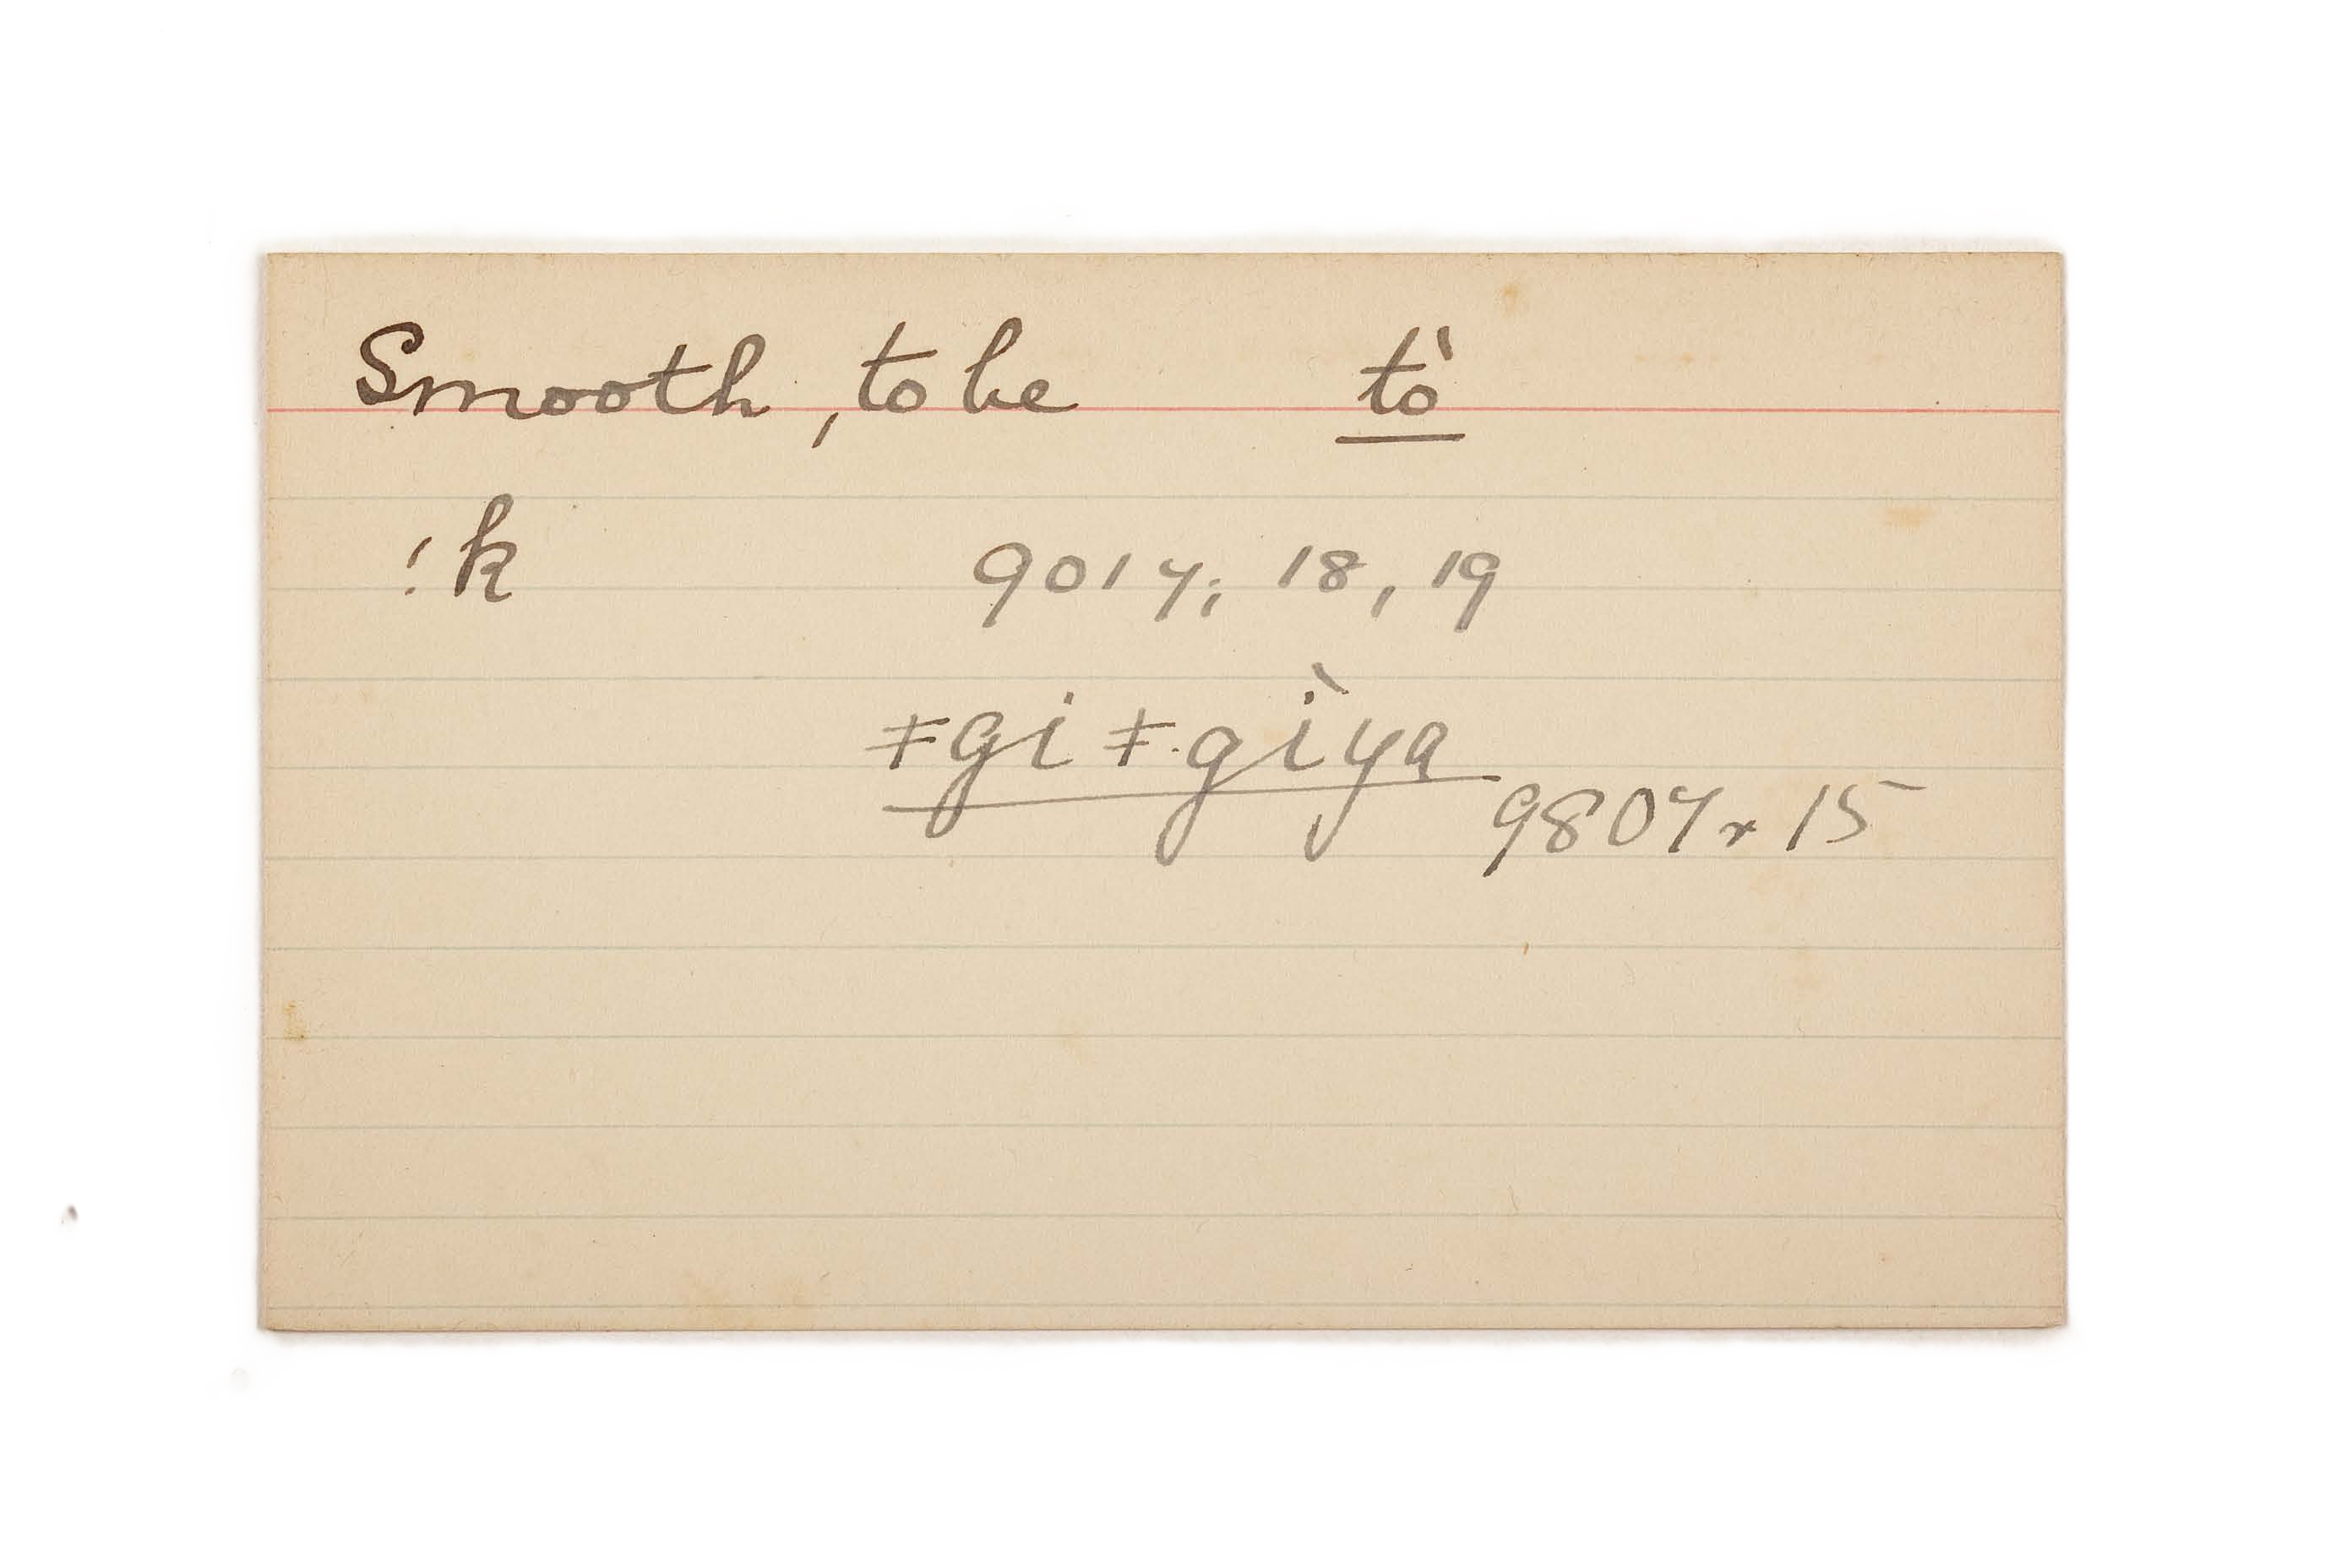 Smooth, to be tò
!k 9017; 18, 19
ǂgi ǂgìya
9807r 15